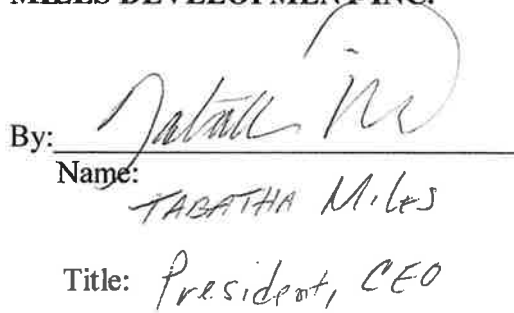 MILES DEVELOPMENT INC.
By: Tabatha M
Name:
TABATHA Miles
Title: President, CEO